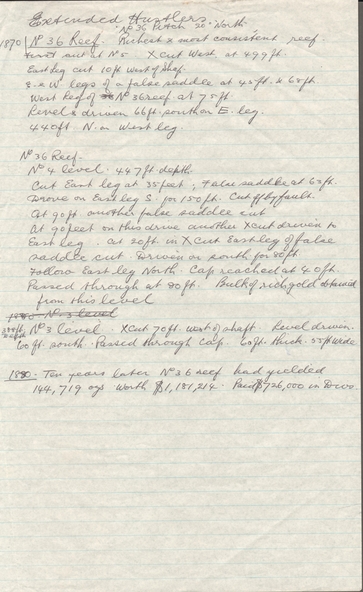 Extended Hustlers
No 36 Pitch 20° North
1870 No 36 Reef. Richest & most consistent reef
First cut at No 5 X Cut West at 499 ft.
East Leg cut 10 ft west of shaft.
E. & W legs of a false saddle at 45 ft & 65 ft.
West Reef of No 36 reef at 75 ft.
Level driven 66 ft. south on E. leg.
440 ft. N. on West leg.
No 36 Reef.
No 4 level. 447 ft. depth.
Cut East leg at 35 feet; False saddle at 65 ft.
Drove on East leg S. for 150 ft. Cut off by fault.
At 90 ft another false saddle cut
At 90 feet on this drive another Xcut driven to
East leg. at 20 ft in X Cut East leg of false
saddle cut. Driven on south for 80 ft
Follow East leg North. Cap reached at 40 ft.
Passed through at 80 ft. Bulk of rich gold obtained
from this level
1880 No 3 level
No 3 level. X Cut 70 ft. west of shaft Level driven
60 ft. south. Passed through Cap 60 ft. thick. 55 ft wide
1880. Ten years later No 36 reef had yielded
144,719 ozs worth $1,181,214. Paid $726,000 in Divs.